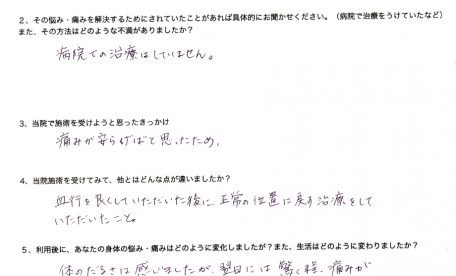 2、その悩み・痛みを解決するためにされていたことがあれば具体的にお聞かせください。（病院で治療をうけていたなど）
また、その方法はどのような不満がありましたか？
病院での治療はしていません。
3、当院で施術を受けようと思ったきっかけ
痛みが安らげばと思ったため。
4、当院施術を受けてみて、他とはどんな点が違いましたか？
血行を良くしていただいた後に、正常の位置に戻す治療をして
いただいたこと。
5、利用後に、あなたの身体の悩み・痛みはどのように変化しましたか？また、生活はどのように変わりましたか？
体のだるさは感じましたが、翌日には驚く程、痛みが